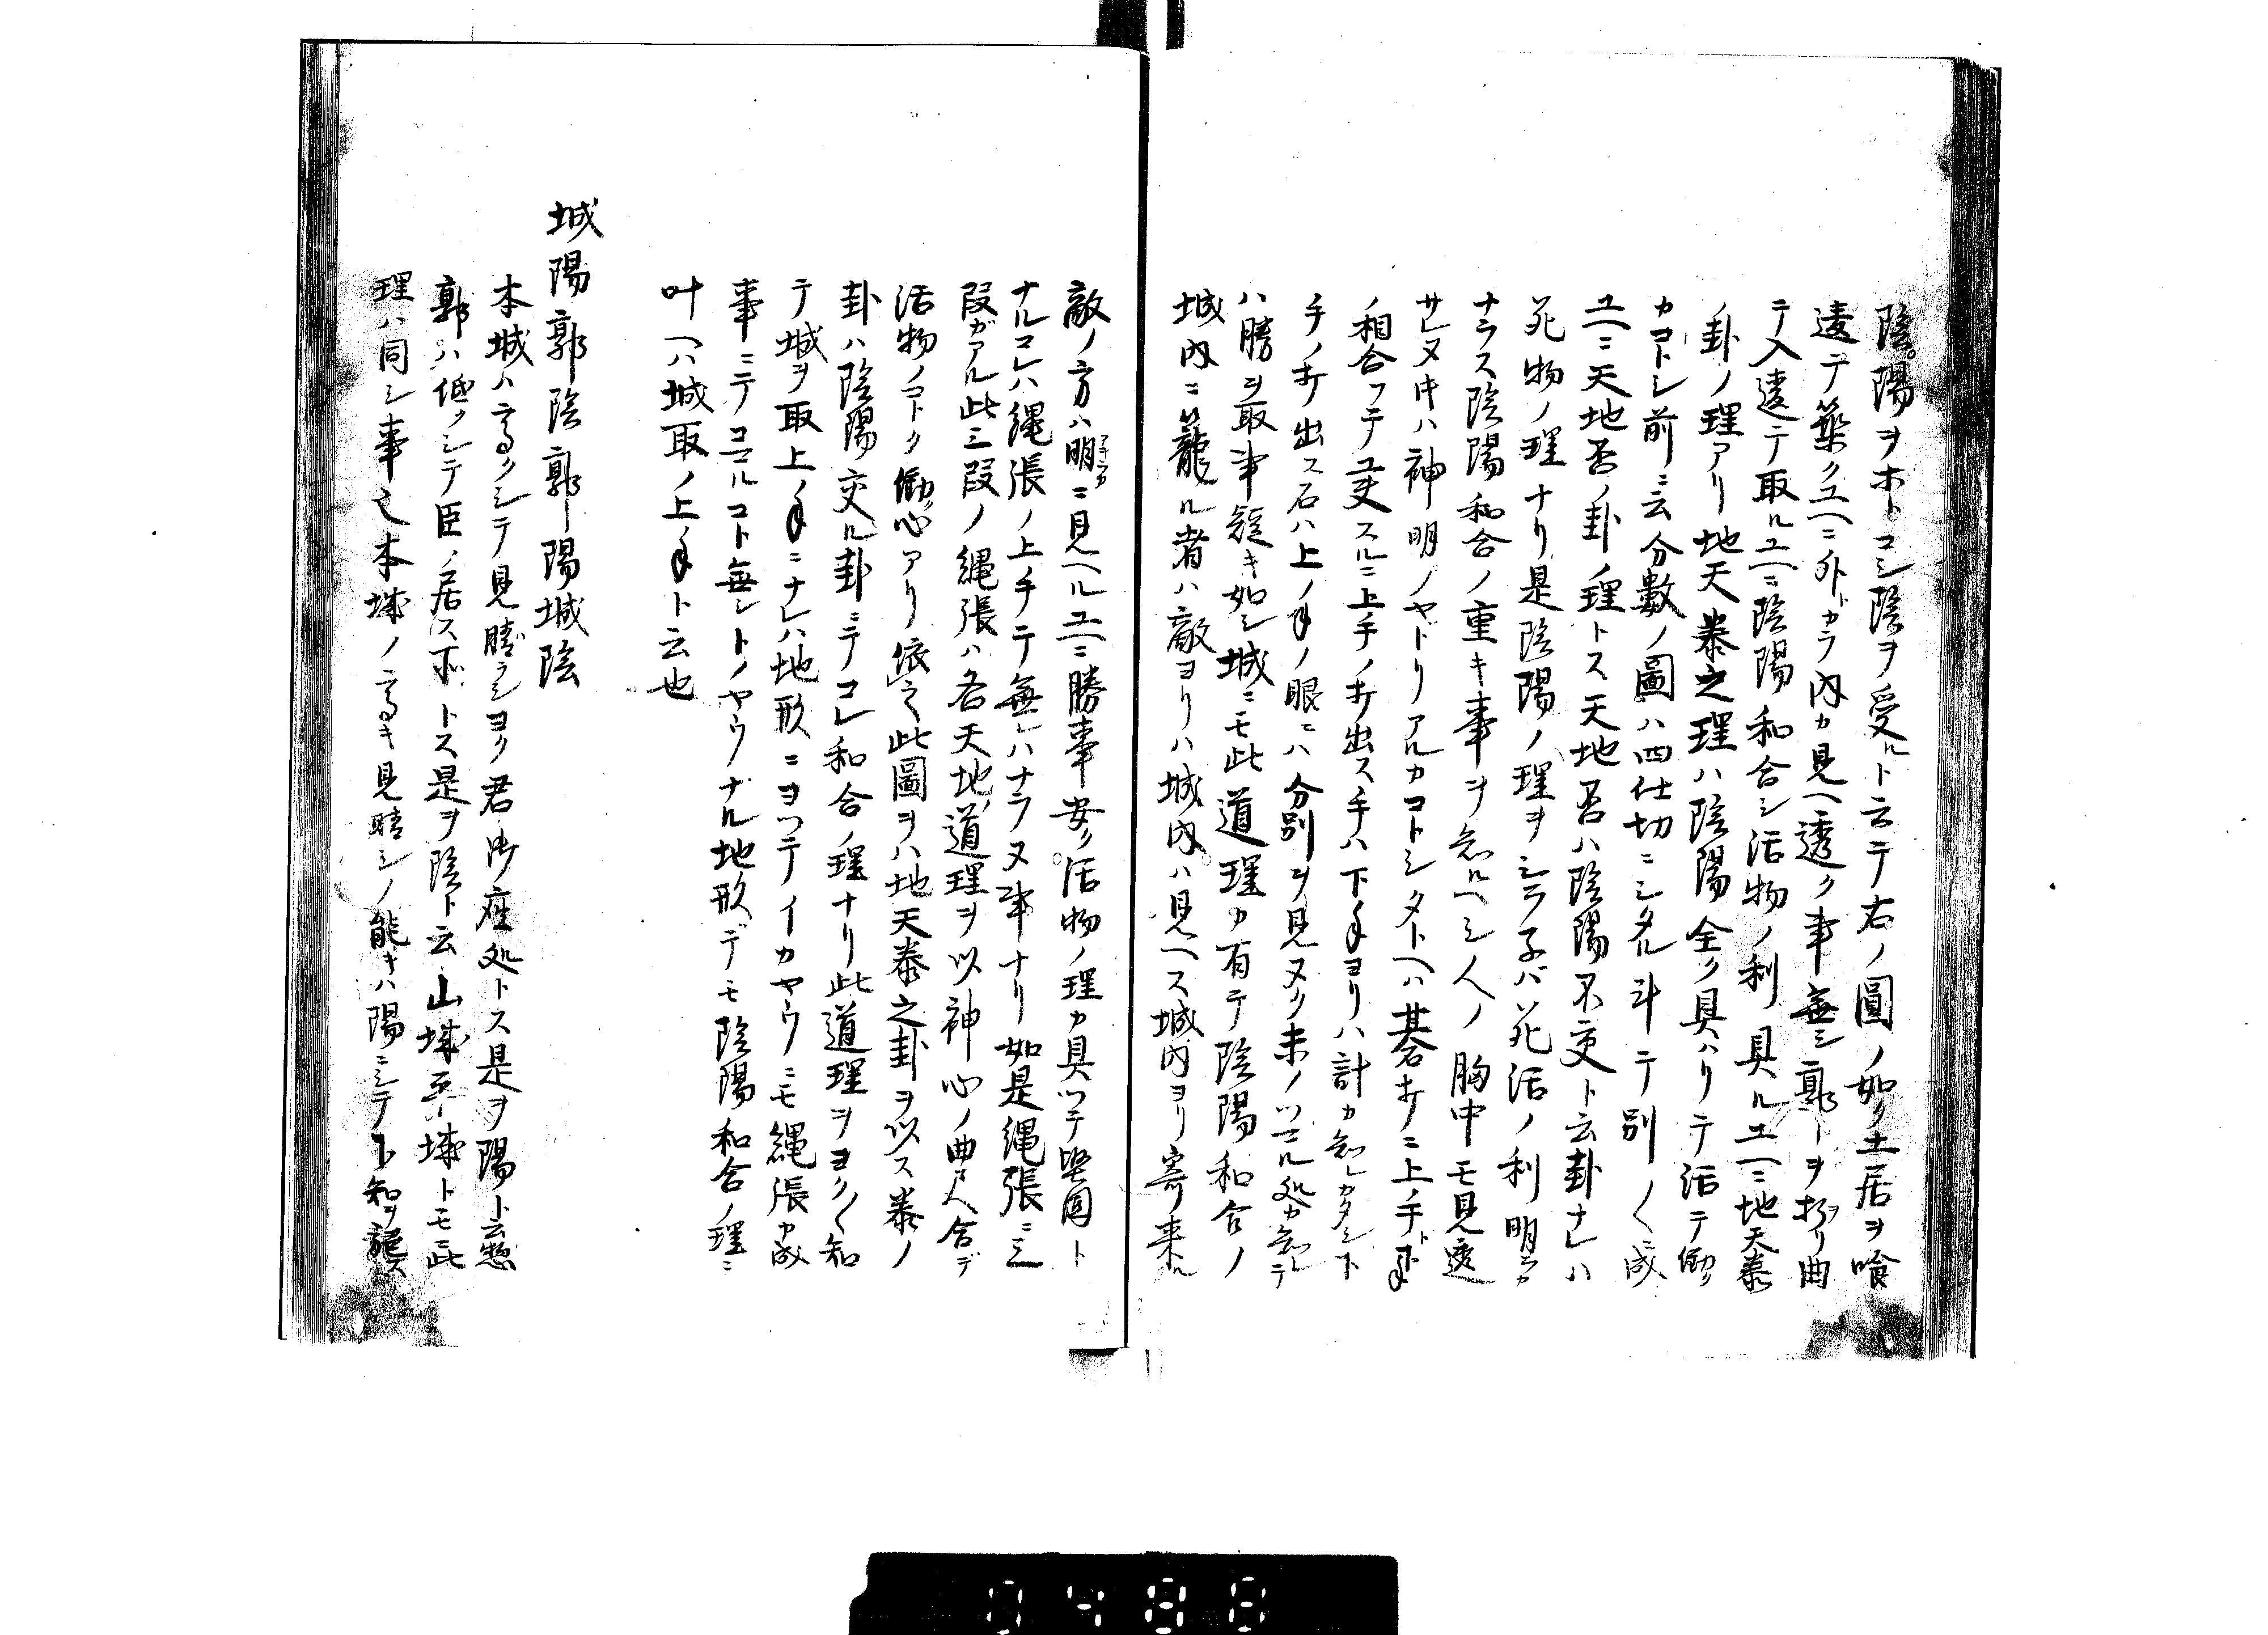 陰陽ヲホトコシ陰ヲ受ルト云テ右ノ圖ノ如ク土居ヲ喰
違テ築クユヘニ外カラ内カ見ヘ透ク事無シ郭ヲ折リ曲
テ入違テ取ルユヘニ陰陽和合シ活物ノ利具ルユヘニ地天泰
ノ卦ノ理アリ地天泰之理ハ陰陽全ク具ハリテ活テ働ク
カコトシ前ニ云分數ノ圖ハ四仕切ニシタル斗テ別〳〵ニ成
ユヘニ天地否ノ卦ノ理トス天地否ハ陰陽不交ト云卦ナレハ
死物ノ理ナリ是陰陽ノ理ヲシラ子バ死活ノ利明ラカ
ナラス陰陽和合ノ重キ事ヲ知ルヘシ人ノ胸中モ見透
サレヌ時ハ神明ノヤドリアルカコトシタトヘハ碁打ニ上手ト下手
ノ相合フテ変スルニ上手ノ打出ス手ハ下手ヨリハ計カ知レカタシ下
手ノ打出ス石ハ上ノ手ノ眼ニハ分別ヲ見ヌク末ノツマル処カ知レテ
ハ勝ヲ取事難キ如シ城ニモ此道理カ有テ陰陽和合ノ
城内ニ籠ル者ハ敵ヨリハ城内ハ見ヘス城内ヨリ寄来ル
敵ノ方ハ明ニ見ヘルユヘニ勝事安ク活物ノ理カ具ツテ堅固ト
ナルコレハ縄張ノ上手テ無レハナラヌ事ナリ如是縄張ニ三
段ガアル此三段ノ縄張ハ各天地道理ヲ以神心ノ曲尺合デ
活物ノコトク働心アリ依之此圖ヲハ地天泰之卦ヲ以ス泰ノ
卦ハ陰陽交ル卦ニテコレ和合ノ理ナリ此道理ヲヨク〳〵知
テ城ヲ取上ノ手ニナレハ地形ニヨツテイカヤウニモ縄張カ成
事ニテコマルコト無シトノヤウナル地形デモ陰陽和合ノ理ニ
叶ヘハ城取ノ上手ト云也
城陽郭陰郭陽城陰
本城ハ高クシテ見晴ラシヨク君御座処トス是ヲ陽ト云惣
郭ハ低クシテ臣ノ居ス所トス是ヲ陰ト云山城平城トモニ此
理ハ同シ事也本城ノ高キ見晴シノ能キハ陽ニシテ下知ヲ